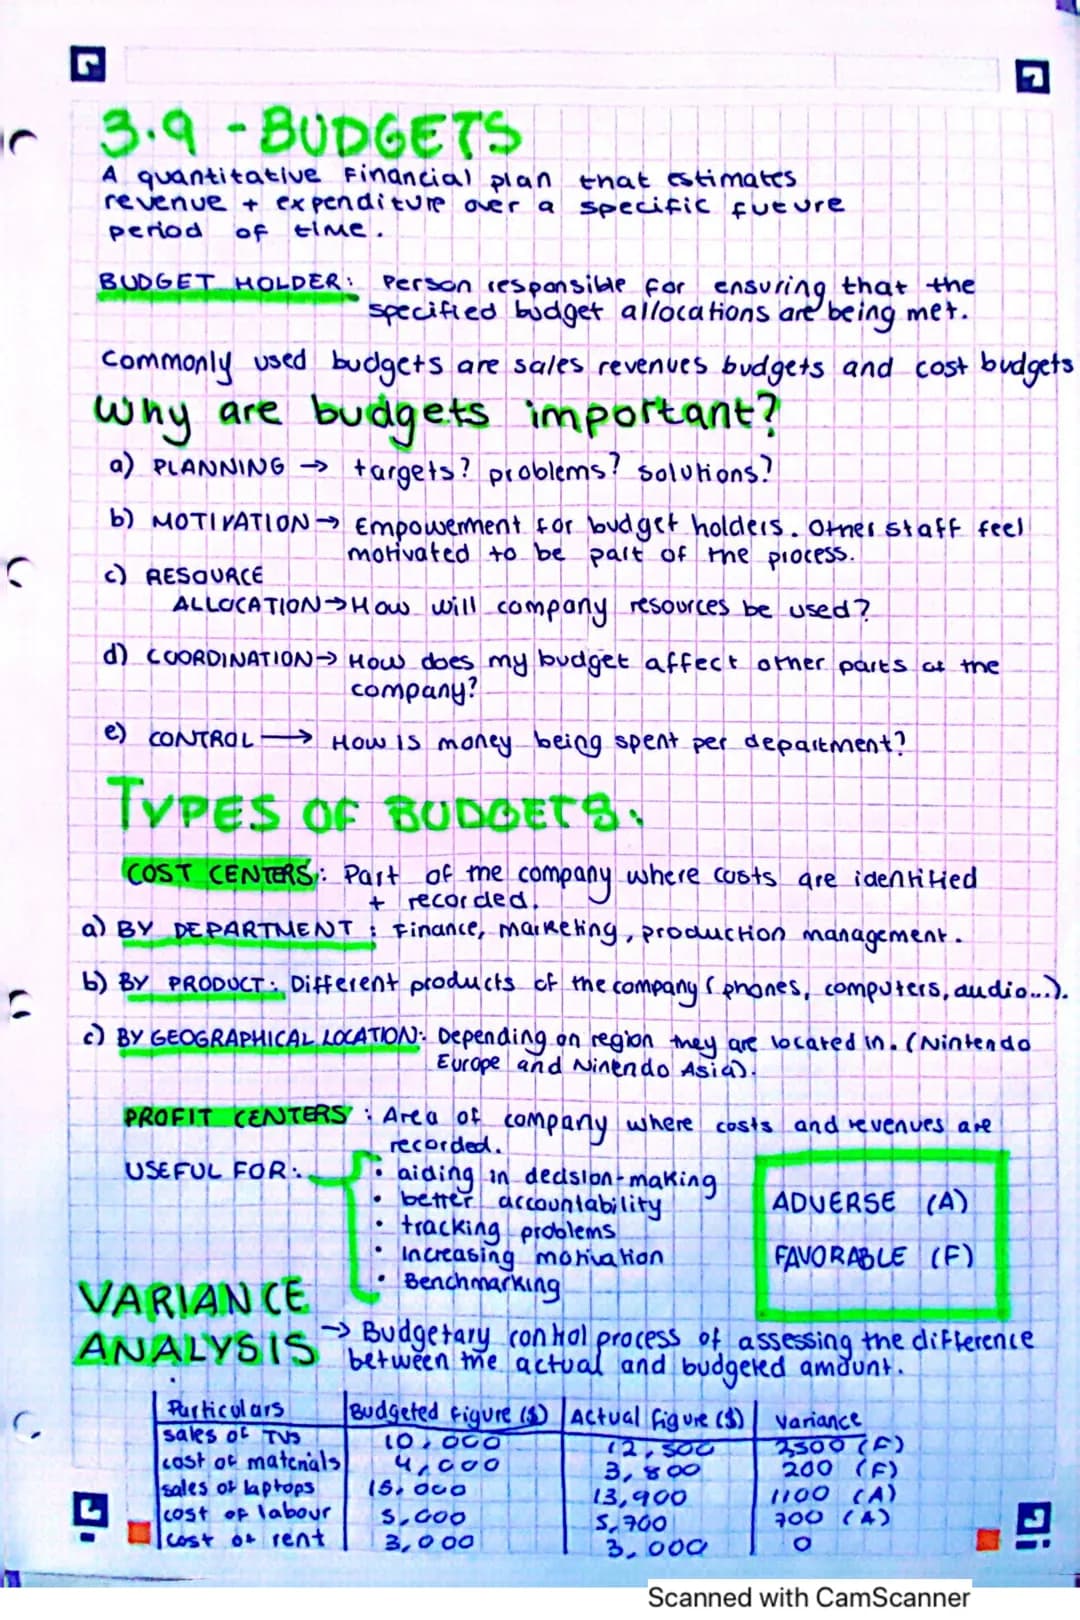 3.9 - BUDGETS
A quantitative Financial plan that estimates
revenue + expenditure over a specific future
period of time.
BUDGET HOLDER: Person responsible for ensuring that the
specified budget allocations are being met.
Commonly used budgets are sales revenues budgets and cost budgets
Why are budgets important?
a) PLANNING → targets? problems? solutions?
b) MOTIVATION → Empowerment for budget holders. Other staff feel
motivated to be part of the process.
c) RESOURCE
ALLOCATION → How will company resources be used?
d) COORDINATION → How does my budget affect other parts of the
company?
e) CONTROL → How is money being spent per department?
TYPES OF BUDGETS:
COST CENTERS: Part of the company where costs are identified
+ recorded.
a) BY DEPARTMENT: Finance, marketing, production management.
b) BY PRODUCT: Different products of the company (phones, computers, audio...).
c) BY GEOGRAPHICAL LOCATION: Depending on region they are located in. (Nintendo
Europe and Ninendo Asia).
PROFIT CENTERS: Area of company where costs and revenues are
recorded.
USEFUL FOR:
• aiding in decision-making
• better accountability
• tracking problems
• Increasing motivation
• Benchmarking
ADVERSE (A)
FAVORABLE (F)
VARIANCE
ANALYSIS → Budgetary control process of assessing the difference
between the actual and budgeted amount.
Particulars Budgeted Figure ($) Actual Figure ($) Variance
sales of TVs 10,000 12,500 2500 (F)
cost of materials 4,000 3,800 200 (F)
sales of laptops 15,000 13,900 1100 (A)
cost of labour 5,000 5,700 700 (A)
cost of rent 3,000 3,000 0
Scanned with CamScanner